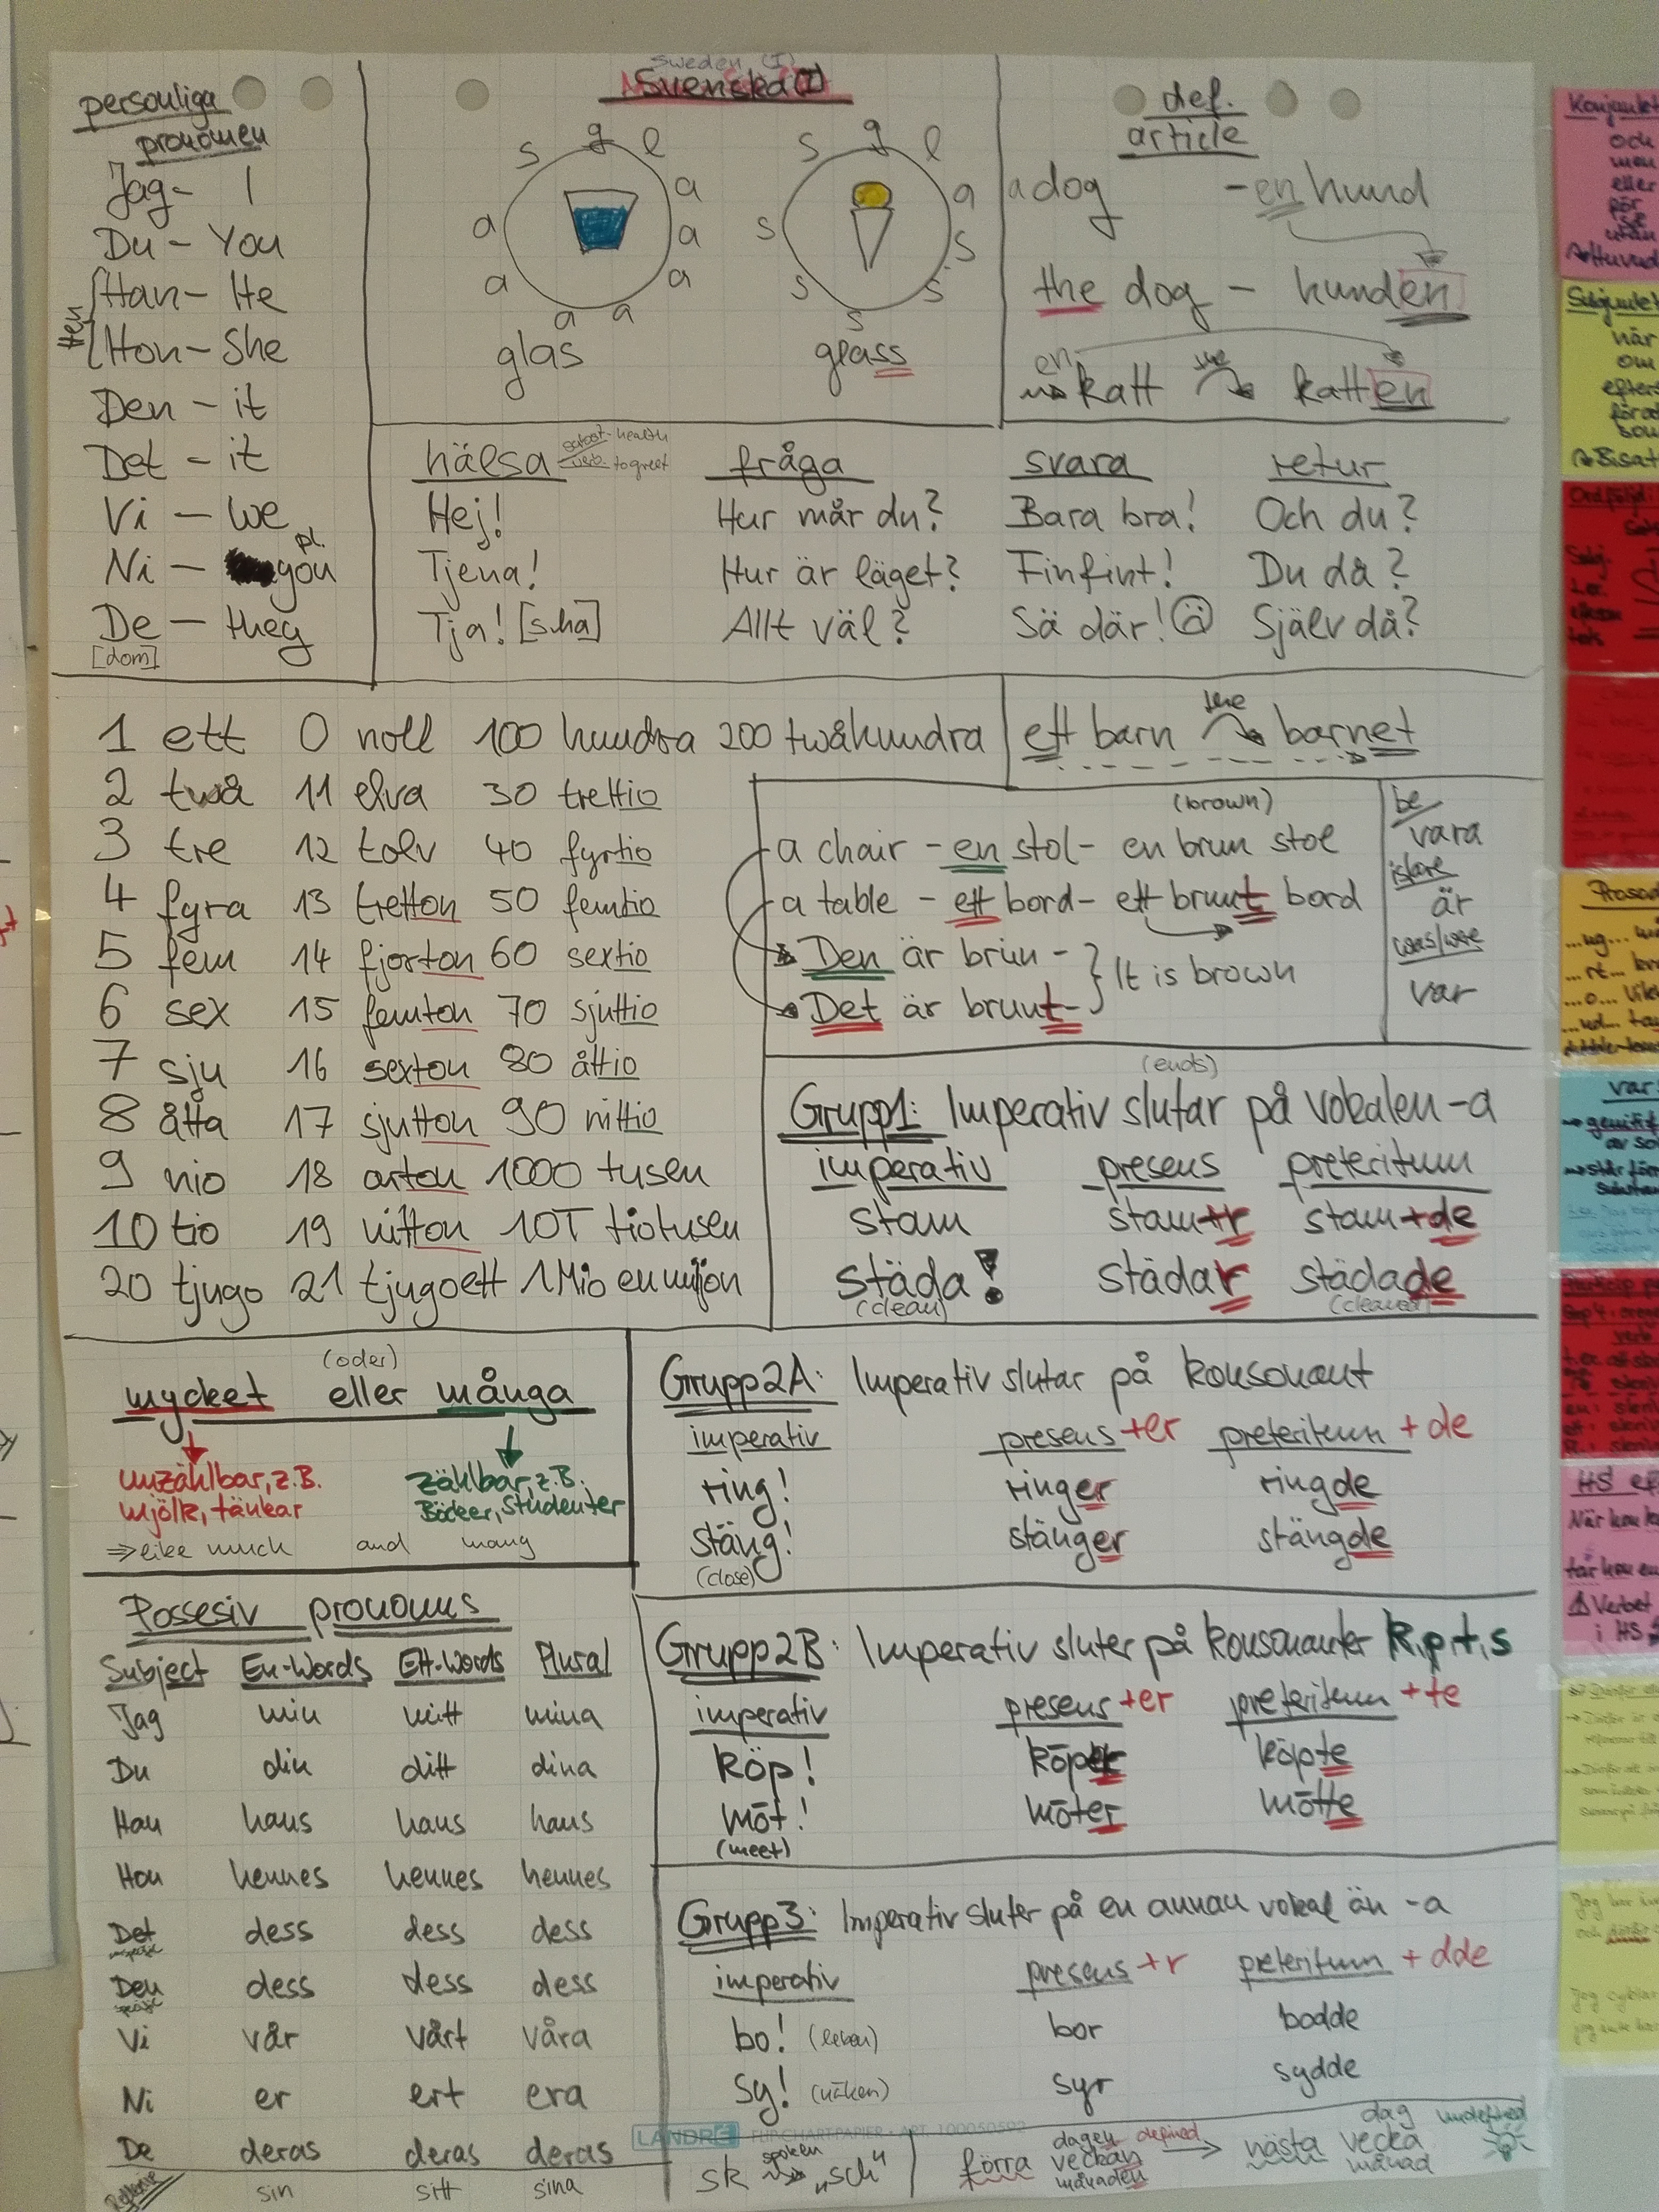 Sweden (I)
Svenska (I)
personliga
pronomen
Jag - I
Du - You
Han - He
Hon - She
Hen
Den - it
Det - it
Vi - we
Ni - you pl.
De - they
[dom]
g l a a a a a a a s
glas
g l a s s s s s
glass
def.
article
a dog - en hund
the dog - hunden
en katt the katten
hälsa subst - health
verb - to greet
fråga svara retur
Hej! Hur mår du? Bara bra! Och du?
Tjena! Hur är läget? Finfint! Du då?
Tja! [sha] Allt väl? Så där! Själv då?
1 ett 0 noll 100 hundra 200 tvåhundra
2 två 11 elva 30 trettio
3 tre 12 tolv 40 fyrtio
4 fyra 13 tretton 50 femtio
5 fem 14 fjorton 60 sextio
6 sex 15 femton 70 sjuttio
7 sju 16 sexton 80 åttio
8 åtta 17 sjutton 90 nittio
9 nio 18 arton 1000 tusen
10 tio 19 nitton 10T tiotusen
20 tjugo 21 tjugoett 1Mio en miljon
the
ett barn barnet
(brown)
a chair - en stol - en brun stol
a table - ett bord - ett brunt bord
Den är brun -
Det är brunt -
} It is brown
be
vara
is/are
är
was/were
var
(ends)
Grupp1: Imperativ slutar på vokalen -a
imperativ presens preteritum
stam stam+r stam+de
städa! städar städade
(clean) (cleaned)
(oder)
mycket eller många
unzählbar, z.B.
mjölk, tänkar
zählbar, z.B.
Böcker, Studenter
⇒ like much and many
Grupp2A: Imperativ slutar på konsonant
imperativ presens +er preteritum + de
ring! ringer ringde
stäng! stänger stängde
(close)
Possesiv pronomns
Subject En-Words Ett-Words Plural
Jag min mitt mina
Du din ditt dina
Han hans hans hans
Hon hennes hennes hennes
Det dess dess dess
Den dess dess dess
Vi vår vårt våra
Ni er ert era
De deras deras deras
Reflexiv sin sitt sina
Grupp2B: Imperativ sluter på konsonanter k,p,t,s
imperativ presens +er preteritum +te
köp! köper köpte
möt! möter mötte
(meet)
Grupp3: Imperativ sluter på en annan vokal än -a
imperativ presens +r preteritum + dde
bo! (leben) bor bodde
sy! (nähen) syr sydde
LANDRÉ FLIP-CHART-PAPIER • ART. 100050592
sk spoken "sch"
förra dagen veckan månaden defined
nästa dag vecka månad undefined
Konjunkt
och
men
eller
för
så
utan
Subjunkt
när
om
efters
för at
som
Bisat
Ordföljd:
Subj.
Prosod
var
genitif
HS ef
När hon k
Verbet
i HS
Jag cyklar